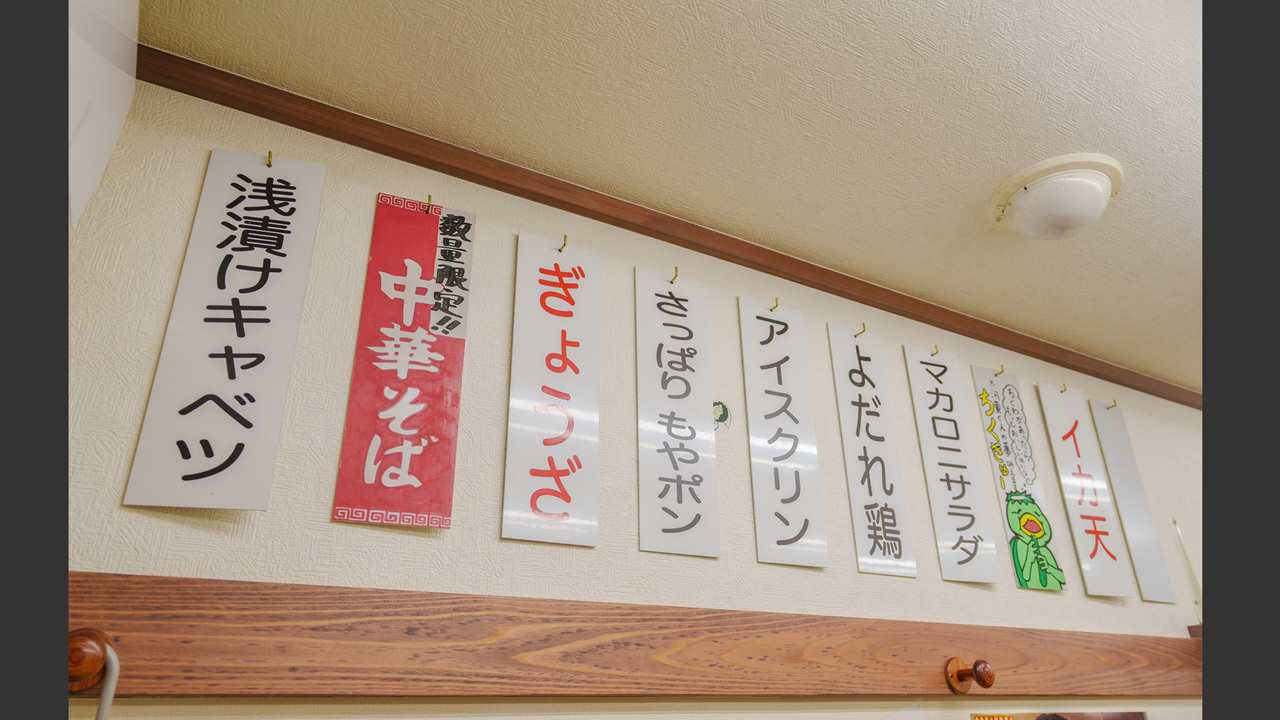 浅漬けキャベツ
数量限定!!
中華そば
ぎょうざ
さっぱりもやポン
アイスクリン
よだれ鶏
マカロニサラダ
ちくきゅー
イカ天